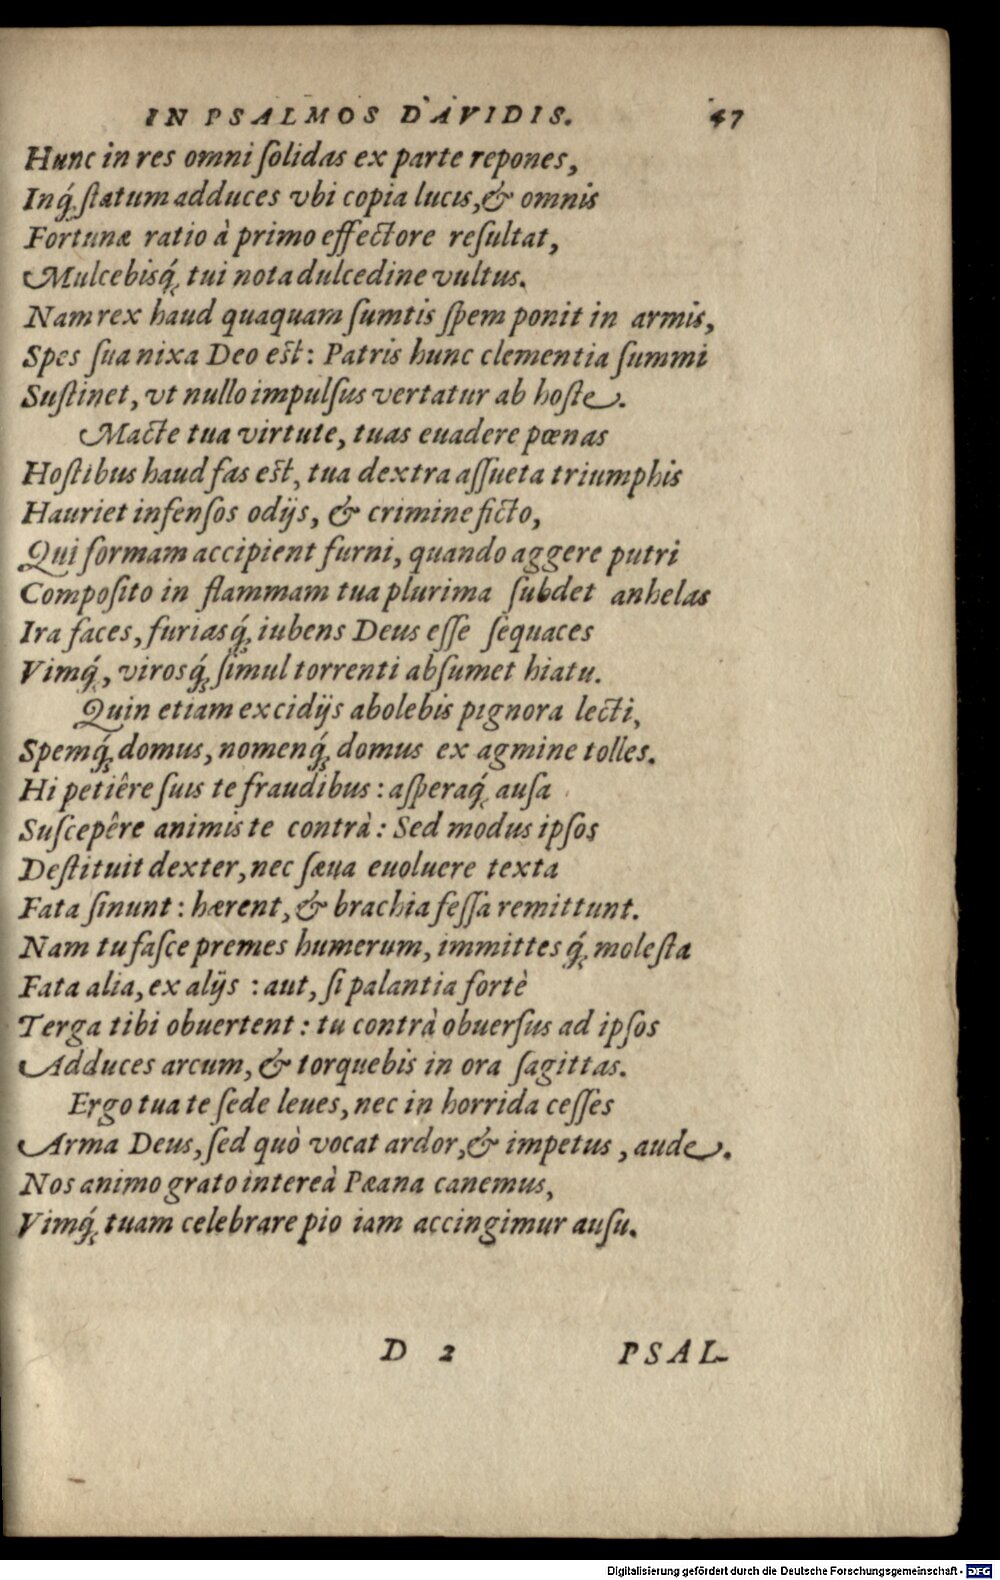 IN PSALMOS DAVIDIS. 47
Hunc in res omni ſolidas ex parte repones,
Inq́; ſtatum adduces vbi copia lucis, & omnis
Fortunæ ratio à primo effectore reſultat,
Mulcebisq́; tui nota dulcedine vultus.
Nam rex haud quaquam ſumtis ſpem ponit in armis,
Spes ſua nixa Deo est: Patris hunc clementia ſummi
Suſtinet, vt nullo impulſus vertatur ab hoſte.
Macte tua virtute, tuas euadere pœnas
Hoſtibus haud fas est, tua dextra aſſueta triumphis
Hauriet infenſos odijs, & crimine ficto,
Qui formam accipient furni, quando aggere putri
Compoſito in flammam tua plurima ſubdet anhelas
Ira faces, furiasq́; iubens Deus eſſe ſequaces
Vimq́;, virosq́; ſimul torrenti abſumet hiatu.
Quin etiam excidijs abolebis pignora lecti,
Spemq́; domus, nomenq́; domus ex agmine tolles.
Hi petiêre ſuis te fraudibus: aſperaq́; auſa
Suſcepêre animis te contrà: Sed modus ipſos
Deſtituit dexter, nec ſæua euoluere texta
Fata ſinunt: hærent, & brachia feſſa remittunt.
Nam tu faſce premes humerum, immittesq́; moleſta
Fata alia, ex alijs: aut, ſi palantia fortè
Terga tibi obuertent: tu contrà obuerſus ad ipſos
Adduces arcum, & torquebis in ora ſagittas.
Ergo tua te ſede leues, nec in horrida ceſſes
Arma Deus, ſed quò vocat ardor, & impetus, aude.
Nos animo grato intereà Pæana canemus,
Vimq́; tuam celebrare pio iam accingimur auſu.
D 2 PSAL-
Digitalisierung gefördert durch die Deutsche Forschungsgemeinschaft - DFG